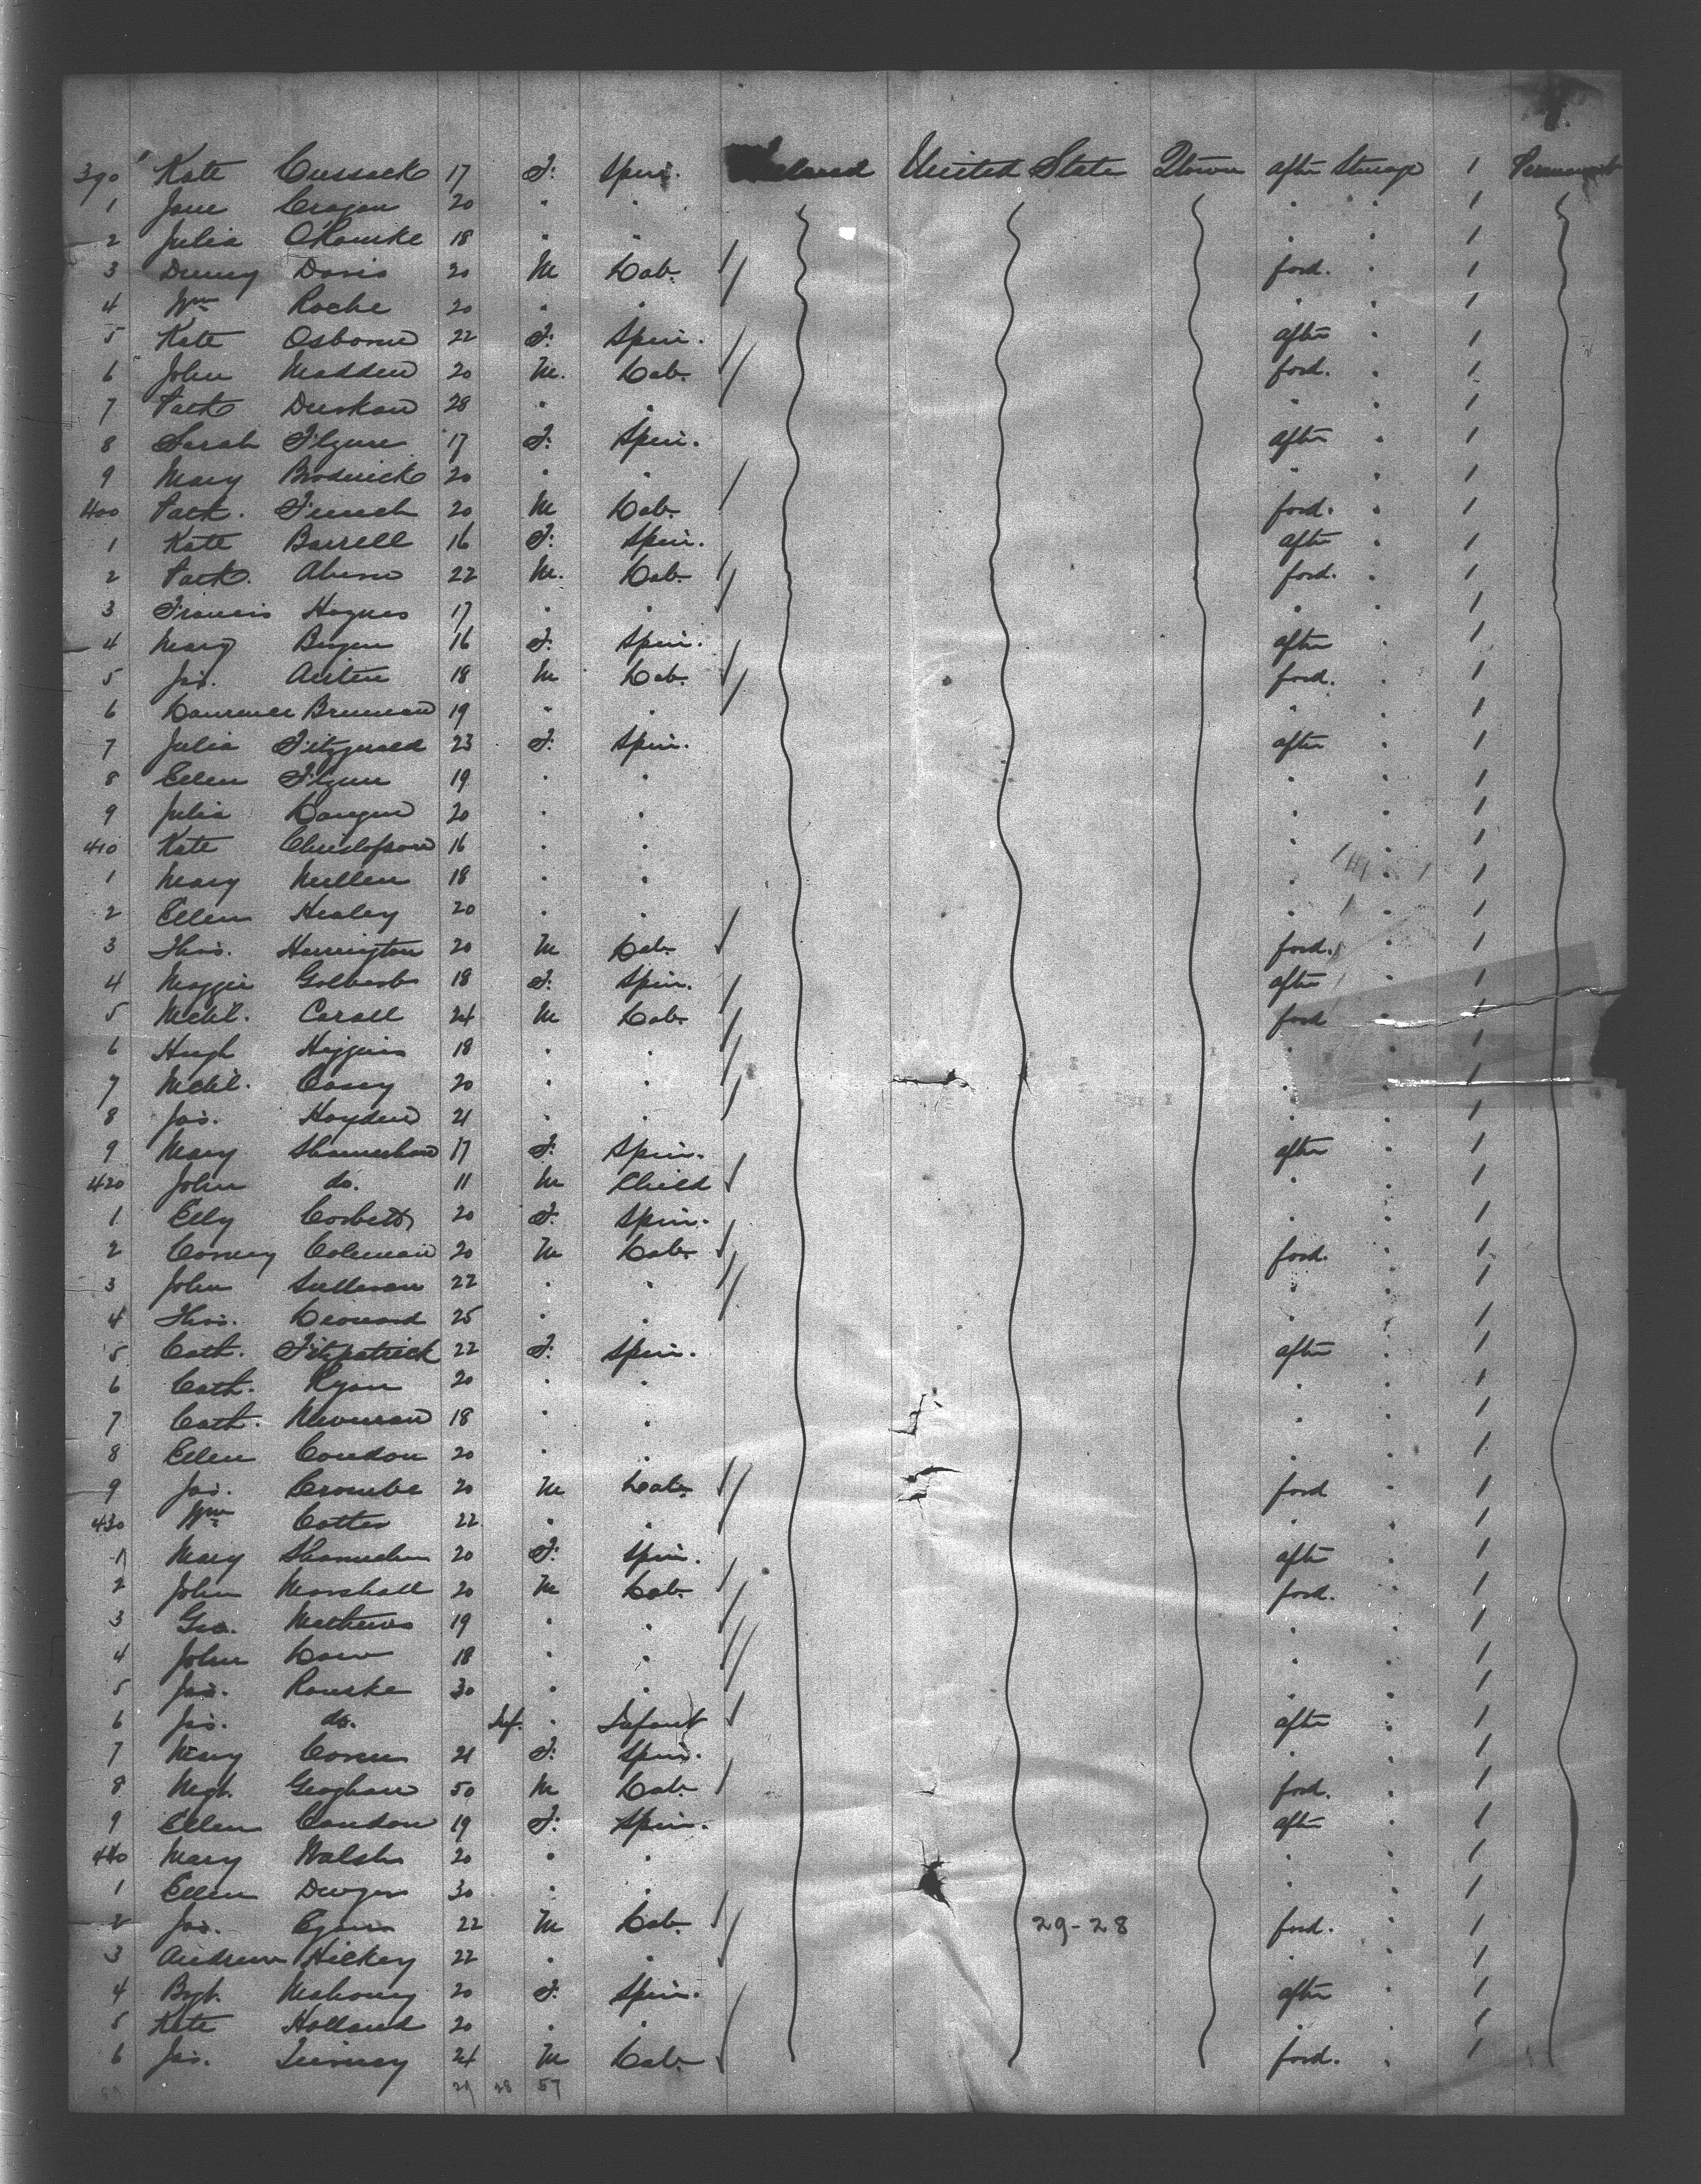 390 " Kate Cussack 17 F. Spin. Ireland United State Qtown after Sterage 1 Permanent
1 Jane Cragan 20 " " " " 1
2 Julia O'Rourke 18 " " " " 1
3 Denny Davis 20 M Lab. ford. " 1
4 Wm Roche 20 " " " " 1
5 Kate Osborne 22 F. Spin. after " 1
6 John Madden 20 M. Lab. ford. " 1
7 Patk 28 " " " " 1
8 Sarah Flynn 17 F. Spin. after " 1
9 Mary Broderick 20 " " " " 1
400 Patk. 20 M Lab. ford. " 1
1 Kate Barrell 16 F. Spin. after " 1
2 Patk. Ahern 22 M. Lab. ford. " 1
3 Francis Hagnes 17 " " " " 1
4 Mary 16 F. Spin. after " 1
5 Jas. Austen 18 M Lab. ford. " 1
6 Laurence Brennan 19 " " " " 1
7 Julia Fitzgerald 23 F. Spin. after " 1
8 Ellen Flynn 19 " " " " 1
9 Julia 20 " " " " 1
410 Kate 16 " " " " 1
1 Mary Mullen 18 " " " " 1
2 Ellen Healey 20 " " " " 1
3 Thos. Harrington 20 M Lab. ford. " 1
4 Maggie 18 F. Spin. after " 1
5 Mchl. Carall 24 M Lab. ford " 1
6 Hugh Higgins 18 " " " " 1
7 Mchl. Casey 20 " " " " 1
8 Jas. Hayden 21 " " " " 1
9 Mary 17 F. Spin. after " 1
420 John do. 11 M Child " " 1
1 Elly Corbett 20 F. Spin. " " 1
2 Corney Coleman 20 M Lab. ford. " 1
3 John Sullivan 22 " " " " 1
4 Thos. Leonard 25 " " " " 1
5 Cath. Fitzpatrick 22 F. Spin. after " 1
6 Cath. Ryan 20 " " " " 1
7 Cath. 18 " " " " 1
8 Ellen Condon 20 " " " " 1
9 Jas. Crombe 20 M Lab. ford " 1
430 Wm Cotter 22 " " " " 1
1 Mary 20 F. Spin. after " 1
2 John Marshall 20 M Lab. ford. " 1
3 Geo. Mathews 19 " " " " 1
4 John 18 " " " " 1
5 Jas. Rourke 30 " " " " 1
6 Jas. do. Inf. " Infant after " 1
7 Mary 21 F. Spin. " " 1
8 Geoghan 50 M Lab. ford. " 1
9 Ellen Condon 19 F. Spin. after " 1
440 Mary Walsh 20 " " " " 1
1 Ellen Dwyer 30 " " " " 1
2 Jas. Egan 22 M Lab. 29-28 ford. " 1
3 Andrew Hickey 22 " " " " 1
4 Bgt. Mahoney 20 F. Spin. after " 1
5 Kate Holland 20 " " " " 1
6 Jas. Tierney 24 M Lab. ford. " 1
29 28 57